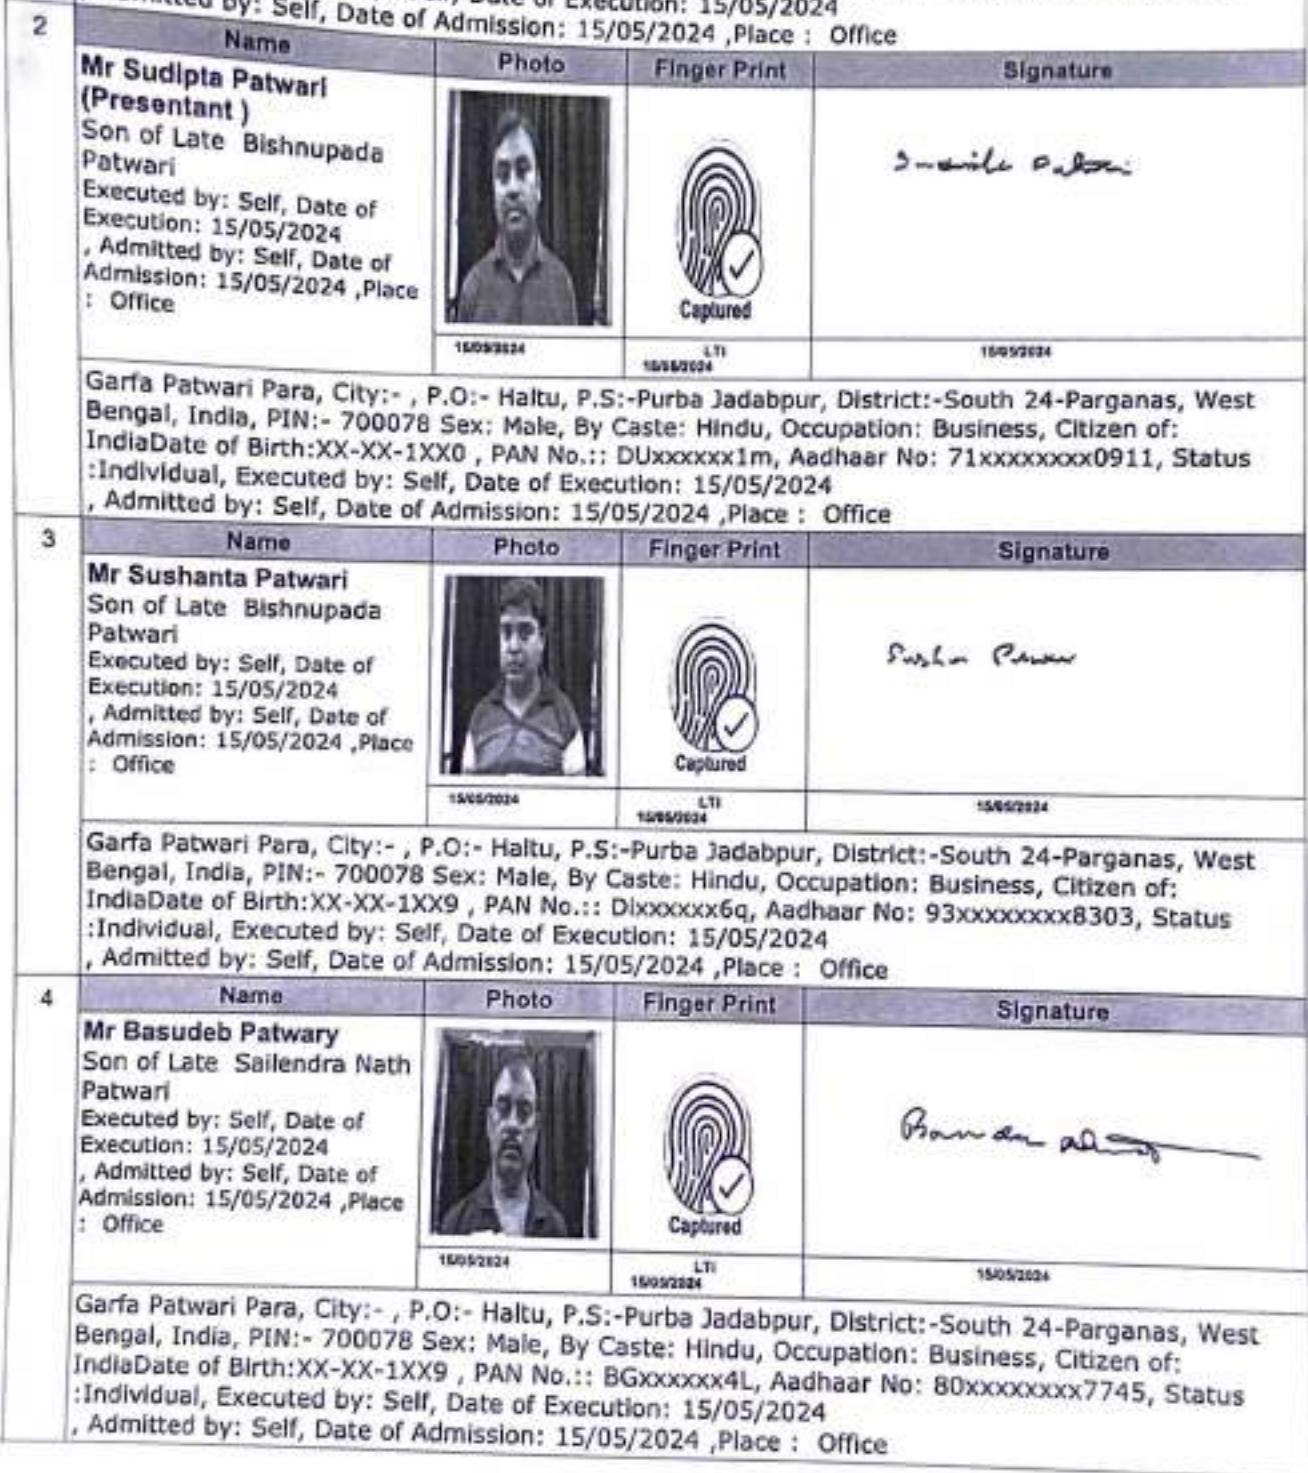 Date of Execution: 15/05/2024
by: Self, Date of Admission: 15/05/2024 ,Place : Office
2
Name
Photo
Finger Print
Signature
Mr Sudipta Patwari
(Presentant )
Son of Late Bishnupada
Patwari
Executed by: Self, Date of
Execution: 15/05/2024
, Admitted by: Self, Date of
Admission: 15/05/2024 ,Place
: Office
Captured
15/05/2024
LTI
15/05/2024
15/05/2024
Garfa Patwari Para, City:- , P.O:- Haltu, P.S:-Purba Jadabpur, District:-South 24-Parganas, West
Bengal, India, PIN:- 700078 Sex: Male, By Caste: Hindu, Occupation: Business, Citizen of:
IndiaDate of Birth:XX-XX-1XX0 , PAN No.:: DUxxxxxx1m, Aadhaar No: 71xxxxxxxx0911, Status
:Individual, Executed by: Self, Date of Execution: 15/05/2024
, Admitted by: Self, Date of Admission: 15/05/2024 ,Place : Office
3
Name
Photo
Finger Print
Signature
Mr Sushanta Patwari
Son of Late Bishnupada
Patwari
Executed by: Self, Date of
Execution: 15/05/2024
, Admitted by: Self, Date of
Admission: 15/05/2024 ,Place
: Office
Captured
15/05/2024
LTI
15/05/2024
15/05/2024
Garfa Patwari Para, City:- , P.O:- Haltu, P.S:-Purba Jadabpur, District:-South 24-Parganas, West
Bengal, India, PIN:- 700078 Sex: Male, By Caste: Hindu, Occupation: Business, Citizen of:
IndiaDate of Birth:XX-XX-1XX9 , PAN No.:: DIxxxxxx6q, Aadhaar No: 93xxxxxxxx8303, Status
:Individual, Executed by: Self, Date of Execution: 15/05/2024
, Admitted by: Self, Date of Admission: 15/05/2024 ,Place : Office
4
Name
Photo
Finger Print
Signature
Mr Basudeb Patwary
Son of Late Sailendra Nath
Patwari
Executed by: Self, Date of
Execution: 15/05/2024
, Admitted by: Self, Date of
Admission: 15/05/2024 ,Place
: Office
Captured
15/05/2024
LTI
15/05/2024
15/05/2024
Garfa Patwari Para, City:- , P.O:- Haltu, P.S:-Purba Jadabpur, District:-South 24-Parganas, West
Bengal, India, PIN:- 700078 Sex: Male, By Caste: Hindu, Occupation: Business, Citizen of:
IndiaDate of Birth:XX-XX-1XX9 , PAN No.:: BGxxxxxx4L, Aadhaar No: 80xxxxxxxx7745, Status
:Individual, Executed by: Self, Date of Execution: 15/05/2024
, Admitted by: Self, Date of Admission: 15/05/2024 ,Place : Office